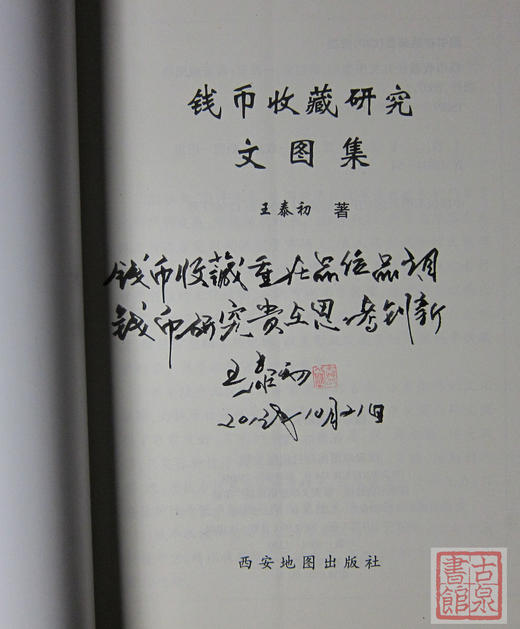 钱币收藏研究
文图集
王泰初 著
钱币收藏重在品位品调
钱币研究贵在思考创新
王泰初
2012年10月21日
西安地图出版社
古泉書館